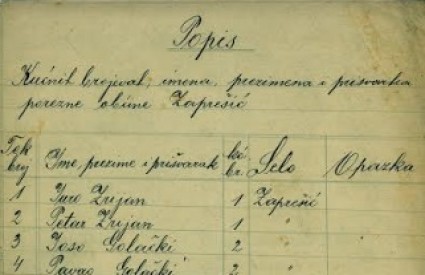 Popis
Kućnih brojeva, imena, prezimena i prišvarka
porezne obćine Zaprešić
Tek. broj Ime, prezime i prišvarak kć. br. Selo Opazka
1 Juro Zrjan 1 Zaprešić
2 Petar Zrjan 1 "
3 Joso Golački 2 "
4 Pavao Golački 2 "